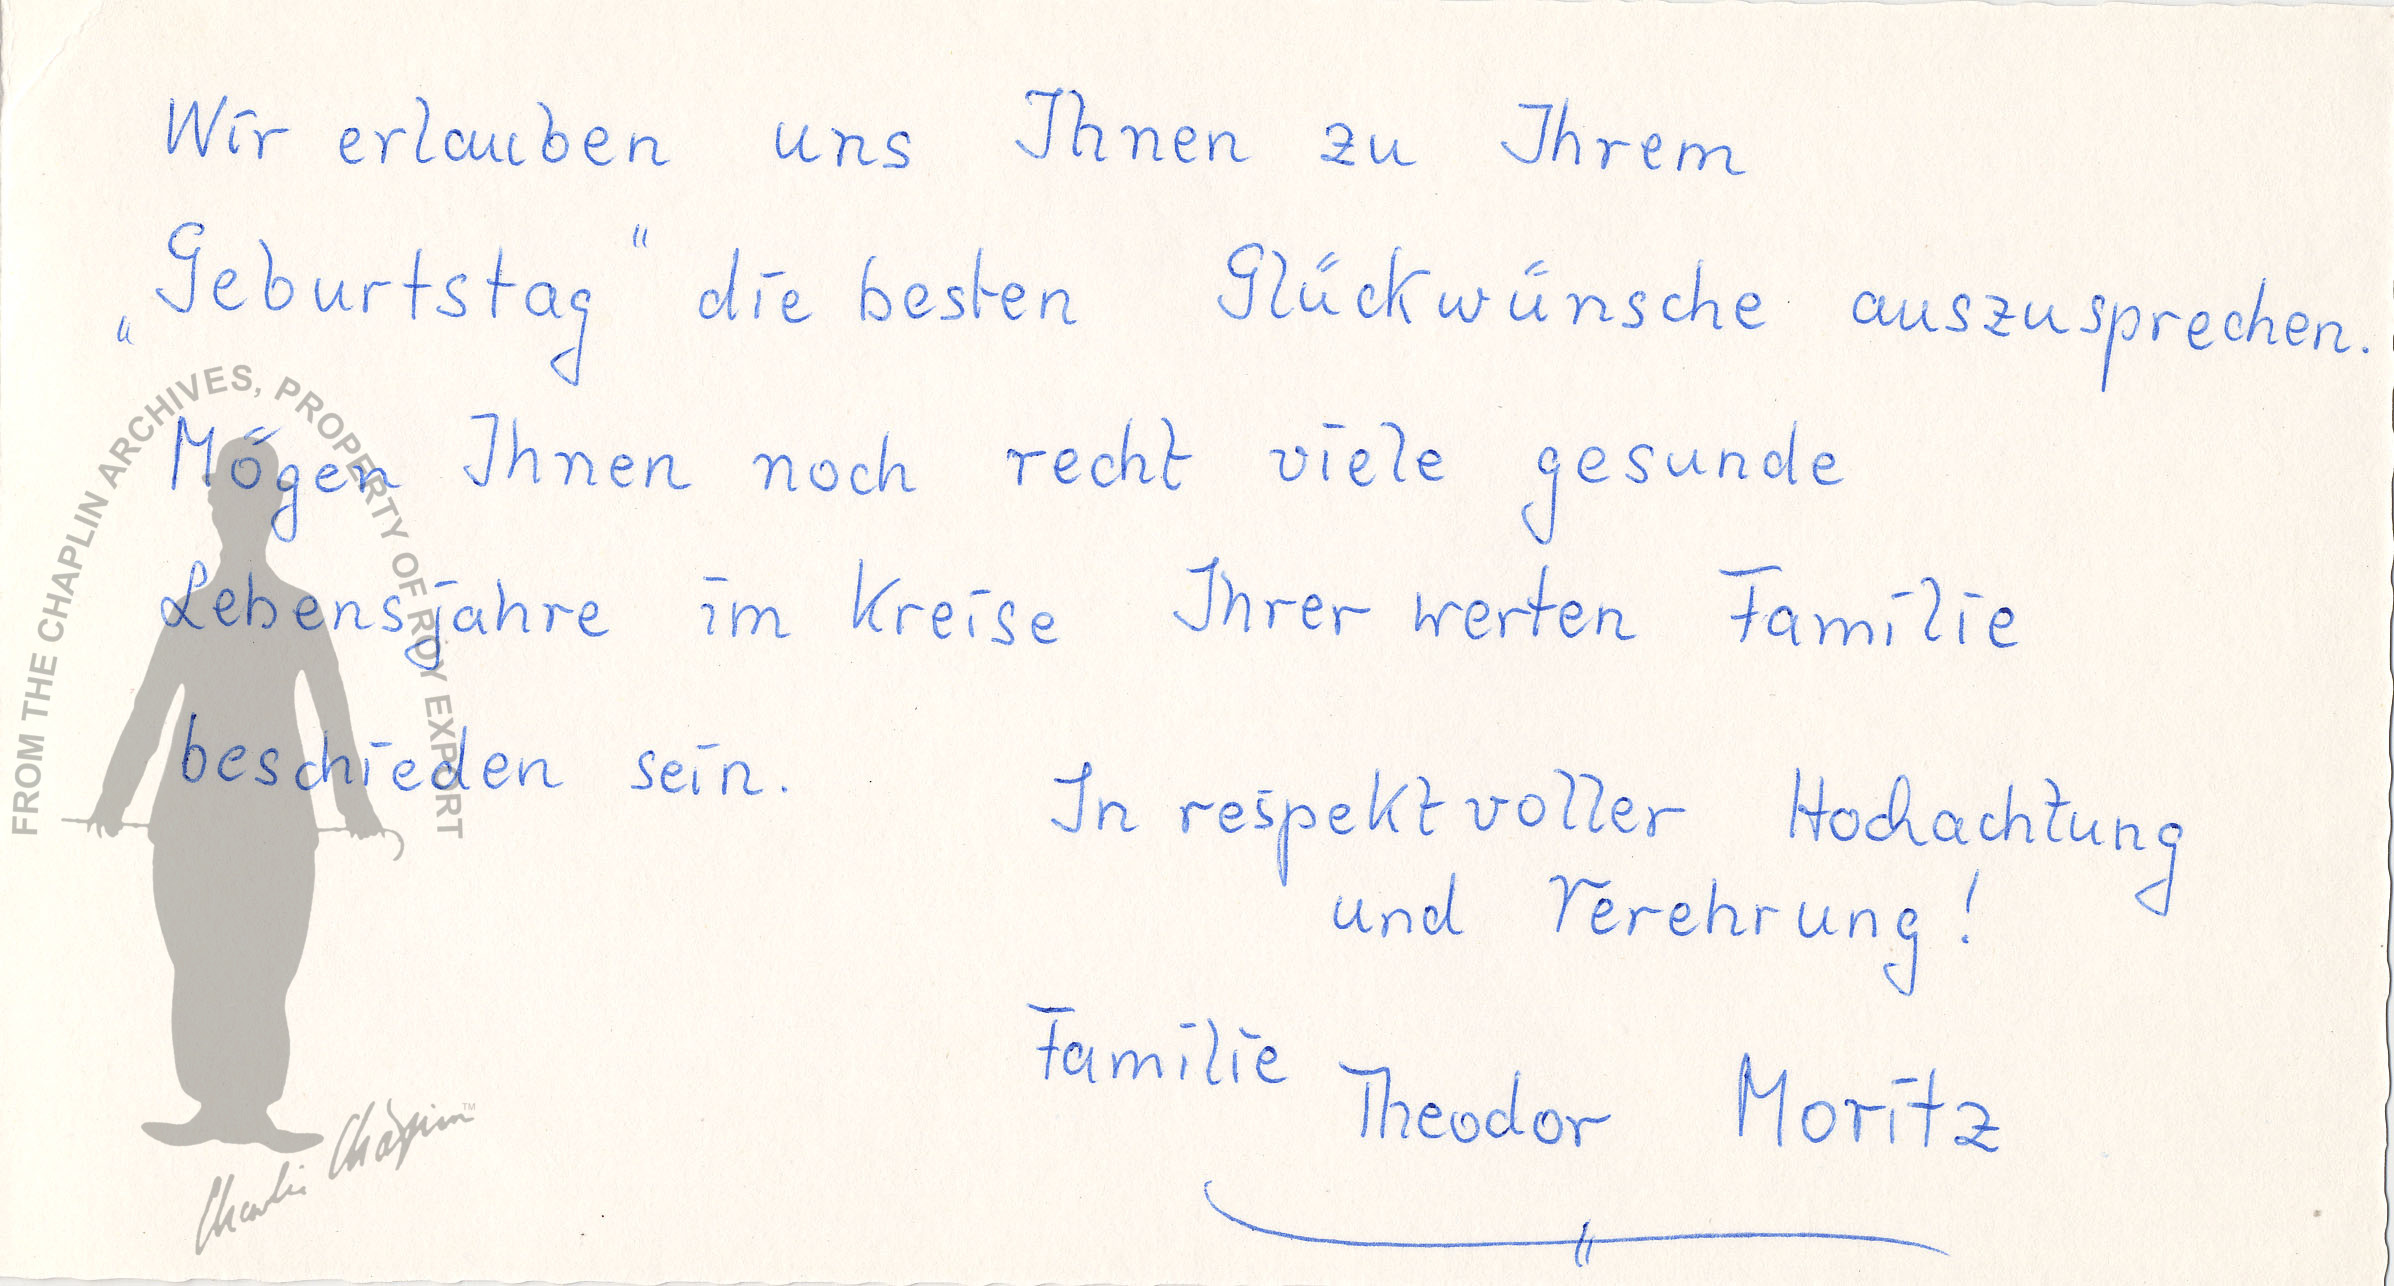 Wir erlauben uns Ihnen zu Ihrem
„Geburtstag“ die besten Glückwünsche auszusprechen.
Mögen Ihnen noch recht viele gesunde
Lebensjahre im Kreise Ihrer werten Familie
beschieden sein.
In respektvoller Hochachtung
und Verehrung!
Familie Theodor Moritz
FROM THE CHAPLIN ARCHIVES, PROPERTY OF ROY EXPORT
Charlie Chaplin™